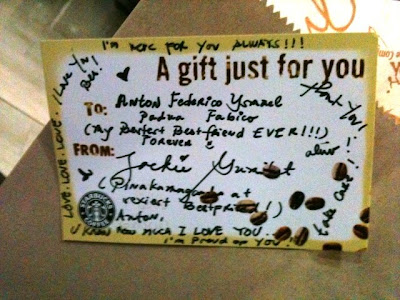 I'm HERE FOR YOU ALWAYS!!!
I Love You
Bes!
A gift just for you
TO: ANTON Federico Ysmael
Padua Fabico
(My Perfect Bestfriend EVER!!!)
FOREVER
Thank You!
always!!
FROM: Jackie
(Pinakamaganda at
sexiest Bestfriend!!)
Take Care!!
LOVE. LOVE. LOVE.
Anton,
U KNOW HOW MUCH I LOVE YOU...
I'm PROUD OF YOU!